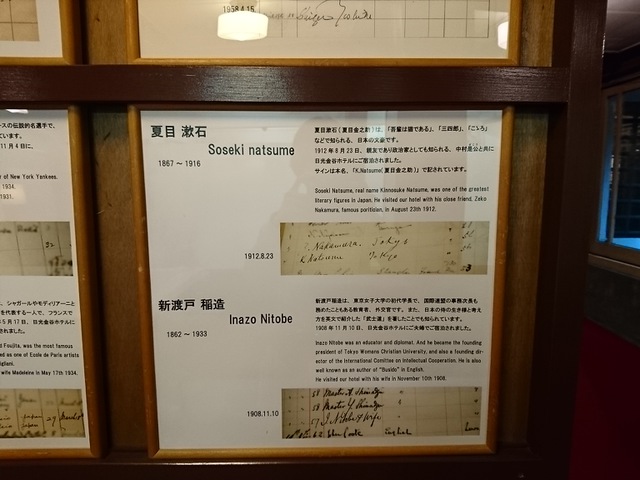 1958.4.15
夏目 漱石
Soseki natsume
1867 ～ 1916
夏目漱石(夏目金之助)は、「吾輩は猫である」、「三四郎」、「こゝろ」
などで知られる、日本の文豪です。
1912年8月23日、親友であり政治家としても知られる、中村是公と共に
日光金谷ホテルにご宿泊されました。
サインは本名、「K.Natsume(夏目金之助)」で記されています。
Soseki Natsume, real name Kinnosuke Natsume, was one of the greatest
literary figures in Japan. He visited our hotel with his close friend, Zeko
Nakamura, famous poritician, in August 23th 1912.
1912.8.23
Nakamura Tokyo
K Natsume Tokyo
新渡戸 稲造
Inazo Nitobe
1862 ～ 1933
新渡戸稲造は、東京女子大学の初代学長で、国際連盟の事務次長も
務めたこともある教育者、外交官です。また、日本の侍の生き様と考え
方を英文で紹介した「武士道」を著したことでも知られています。
1908年11月10日、日光金谷ホテルにご夫婦でご宿泊されました。
Inazo Nitobe was an educator and diplomat. And he became the founding
president of Tokyo Womans Christian University, and also a founding dir-
ector of the International Comittee on Intellectual Cooperation. He is also
well known as an author of "Busido" in English.
He visited our hotel with his wife in November 10th 1908.
1908.11.10
I Nitobe & Wife
English
ースの伝説的名選手で、
ています。
11月4日に、
er of New York Yankees.
1934.
1931.
32
、シャガールやモディリアーニと
を代表する一人で、フランスで
5月17日、日光金谷ホテルに
d Foujita, was the most famous
ed as one of Ecole de Paris artists
igliani.
wife Madeleine in May 17th 1934.